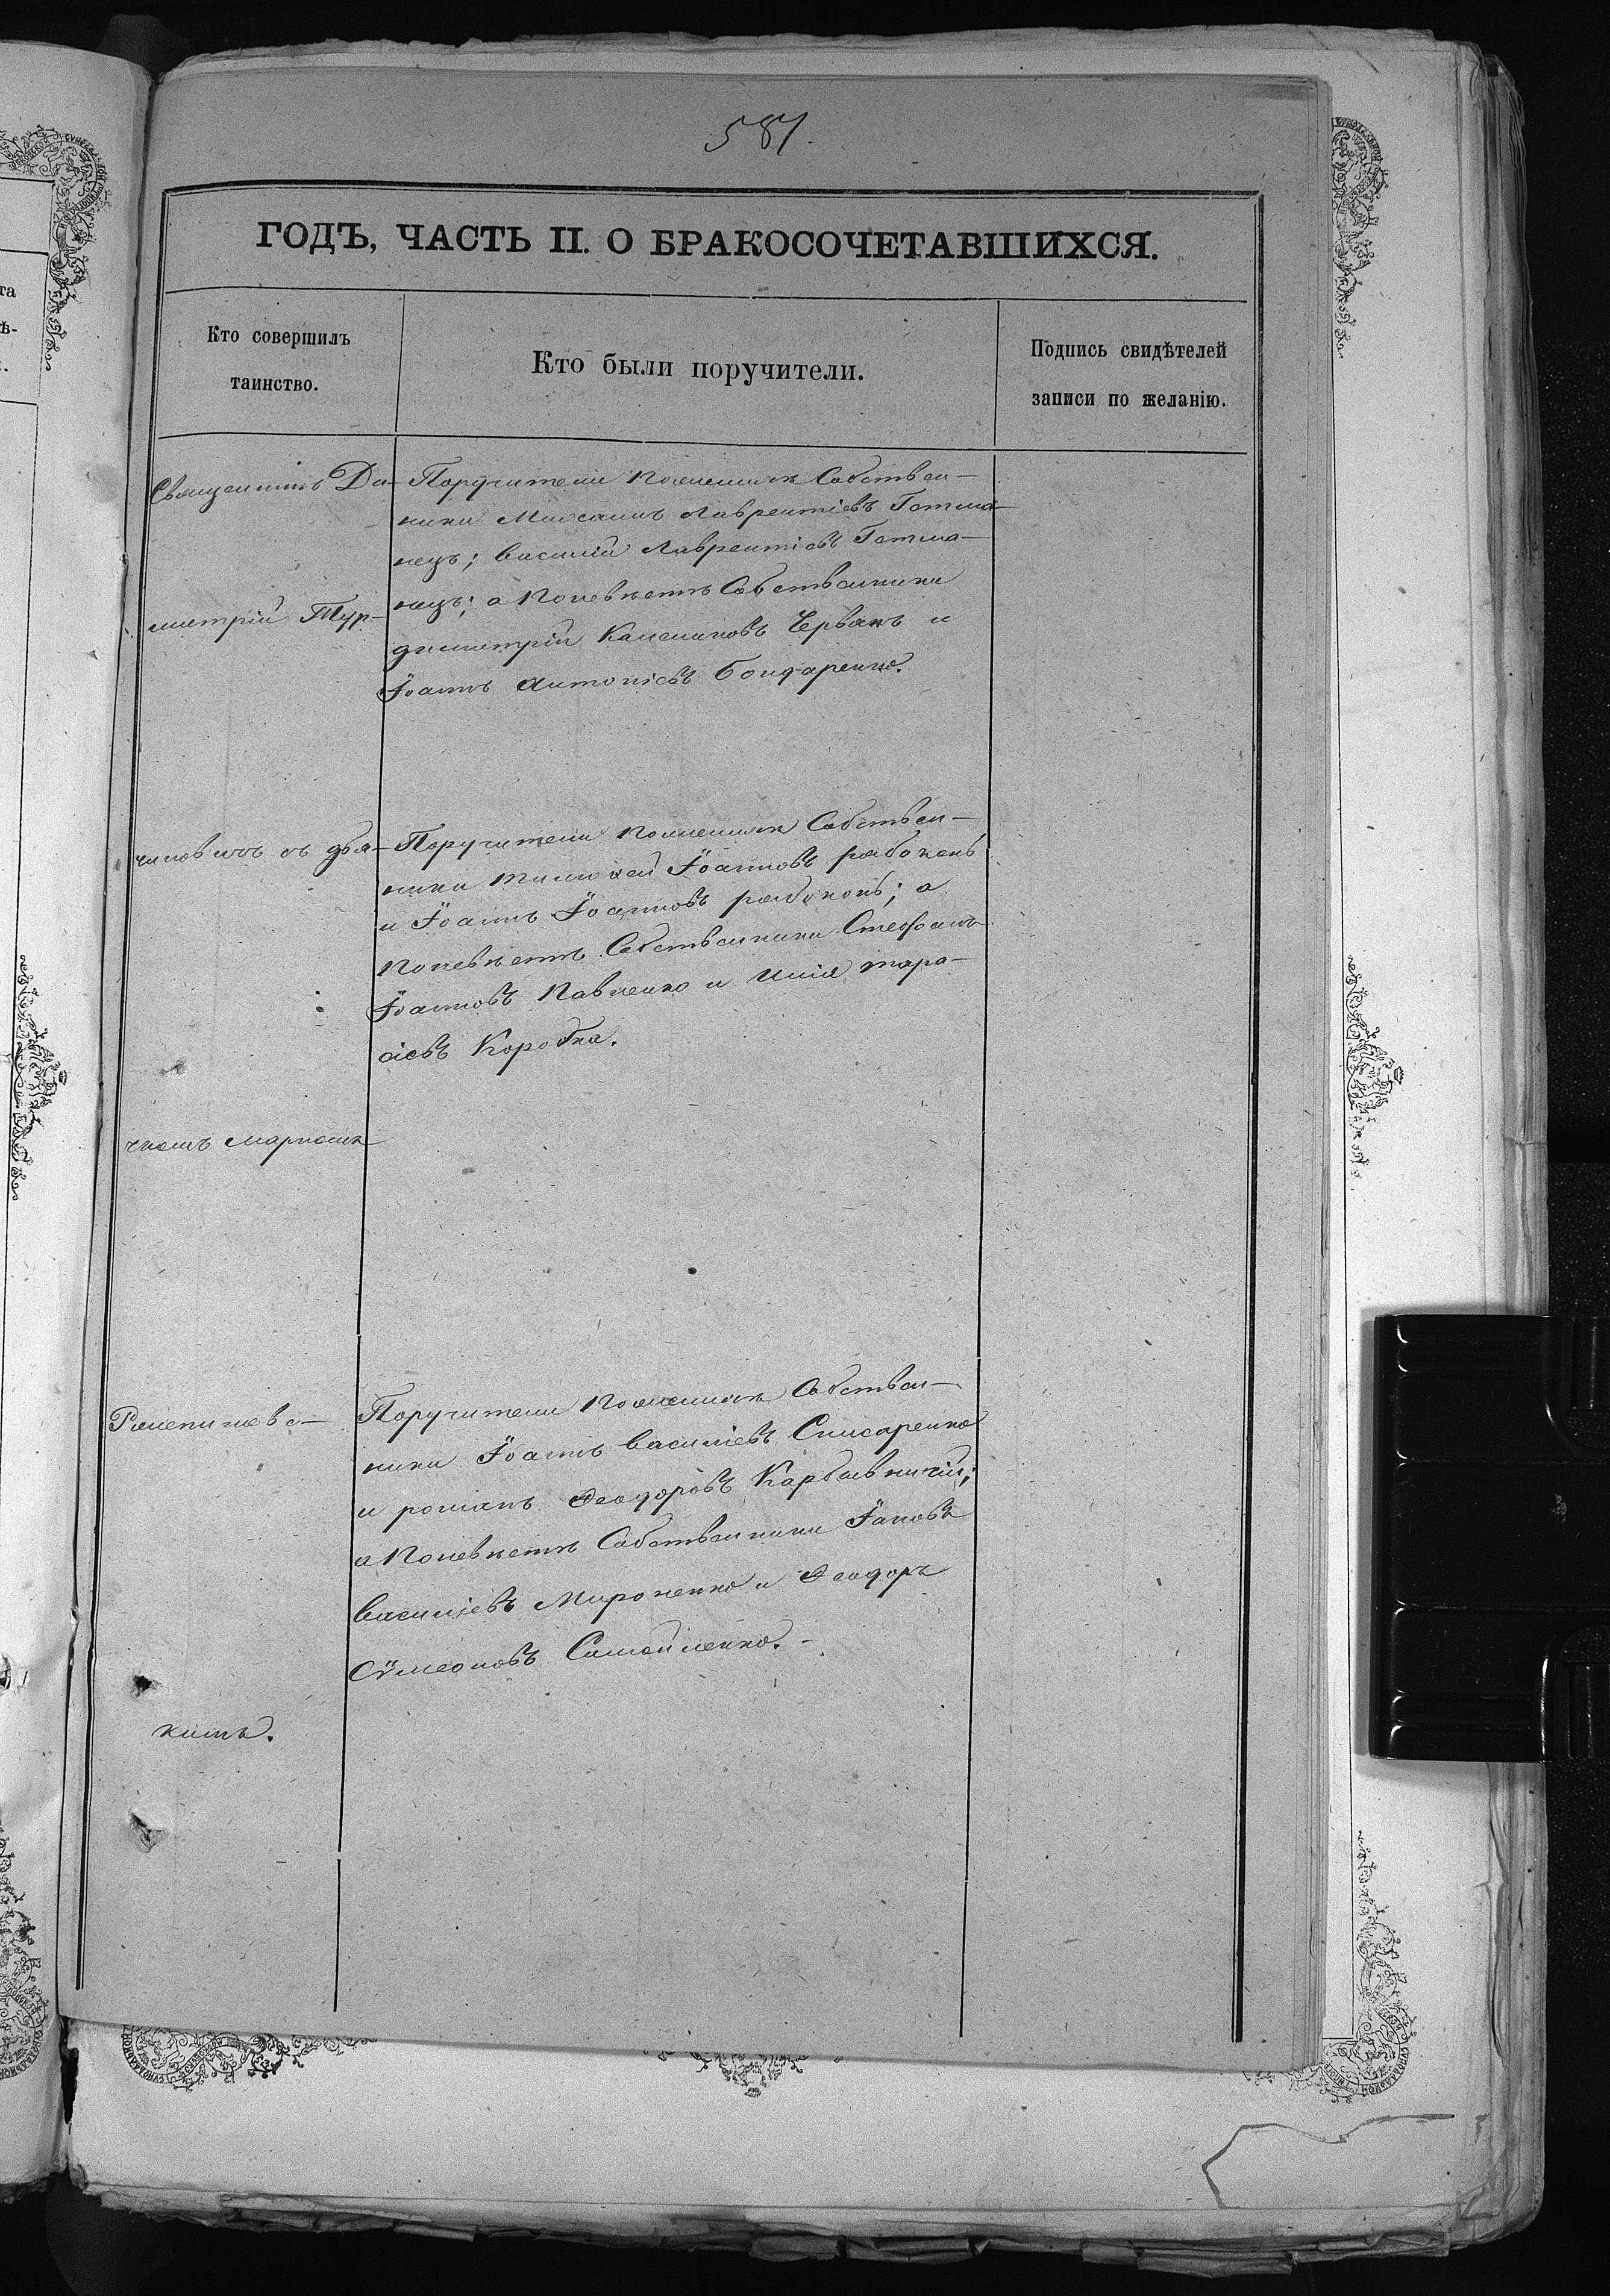 581.
ГОДЪ, ЧАСТЬ II. О БРАКОСОЧЕТАВШИХСЯ.
Кто совершилъ
таинство.
Кто были поручители.
Подпись свидѣтелей
записи по желанію.
Священникъ Ди-
митрій Тур-
чиновичъ съ дья-
чкомъ Маркомъ
кимъ.
Поручители по женихѣ Собствен-
ники Михаилъ Лаврентіевъ Гетма-
нецъ; Василій Лаврентіевъ Гетма-
нецъ; а по невѣстѣ Собственники
Димитрій Червякъ и
Іоаннъ Антоніевъ Бондаренко.
Поручители по женихѣ Собствен-
ники Тимофей Іоанновъ Рябоконь
и Іоаннъ Іоанновъ Рябоконь; а
по невѣстѣ Собственники Стефанъ
Іоанновъ Павленко и Илія Тара-
сіевъ Коробка.
Поручители по женихѣ Собствен-
ники Іоаннъ Василіевъ Слисаренко
и Романъ Феодоровъ
а по невѣстѣ Собственники Іаковъ
Василіевъ Мироненко и Феодоръ
Сѵмеоновъ Самойленко.